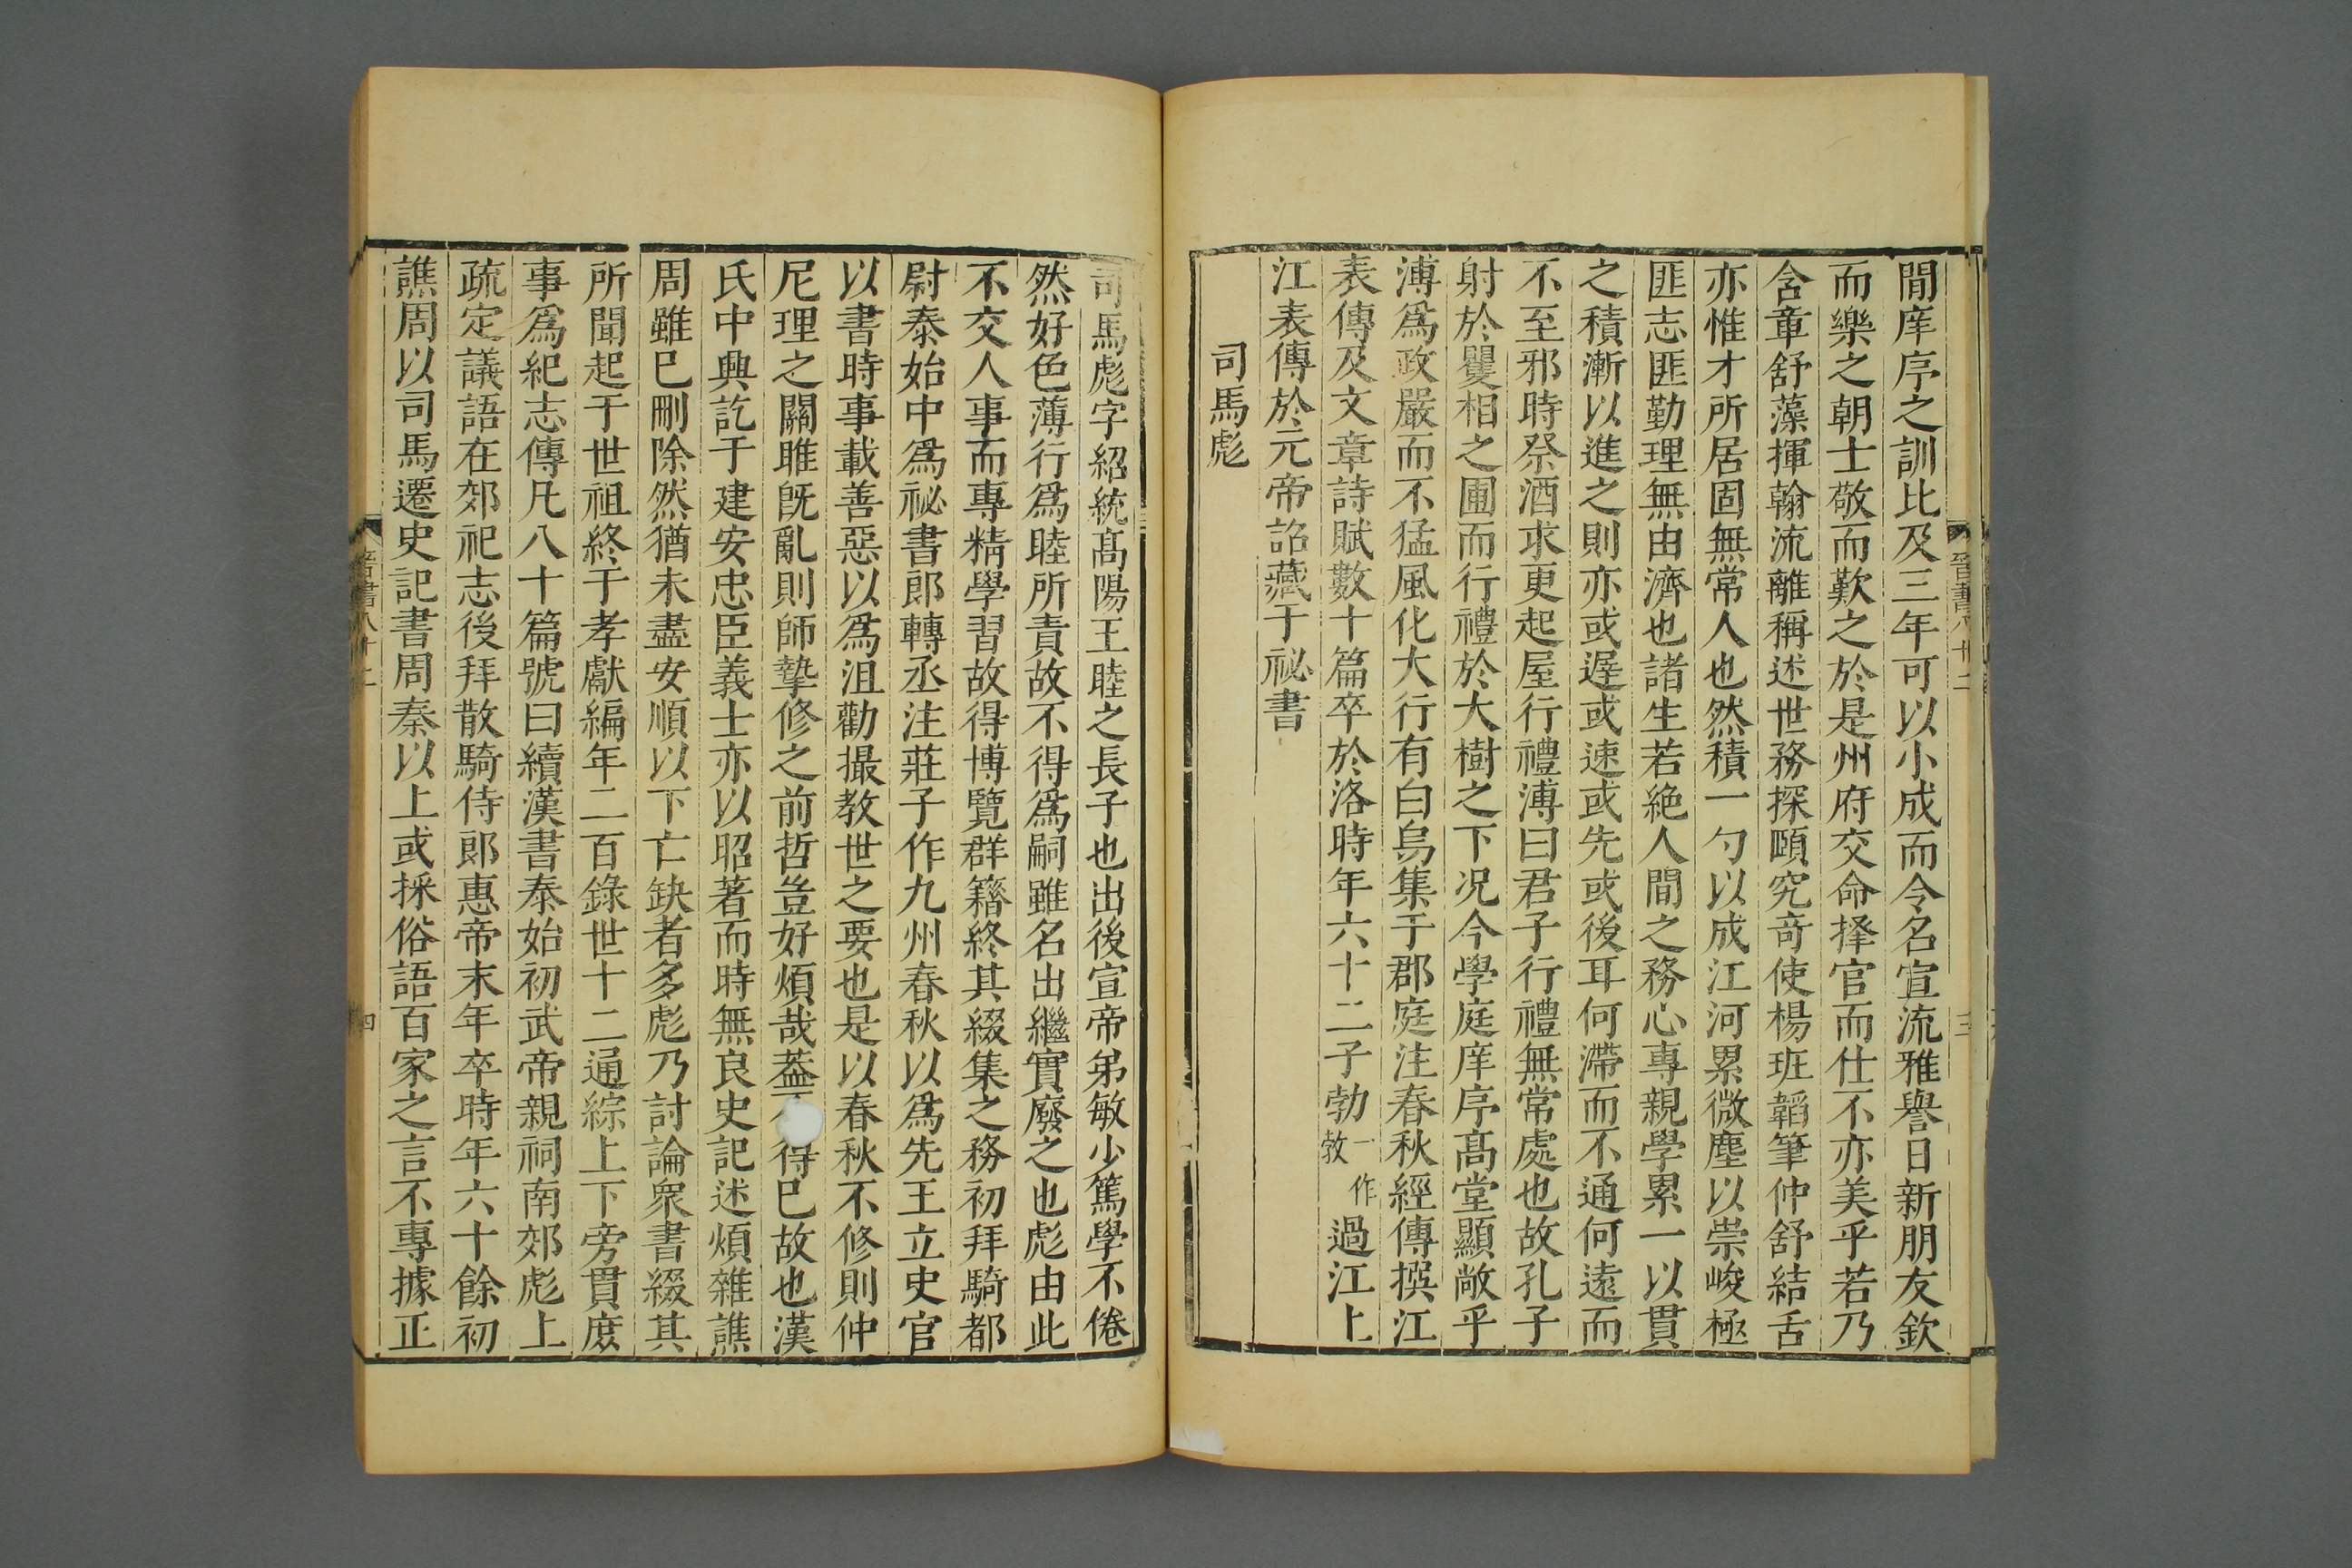 間庠序之訓比及三年可以小成而令名宣流雅譽日新朋友欽
而樂之朝士敬而歎之於是州府交命擇官而仕不亦美乎若乃
含章舒藻揮翰流離稱述世務探賾究奇使楊班韜筆仲舒結舌
亦惟才所居固無常人也然積一勺以成江河累微塵以崇峻極
匪志匪勤理無由濟也諸生若絶人間之務心專親學累一以貫
之積漸以進之則亦或遲或速或先或後耳何滯而不通何遠而
不至邪時祭酒求更起屋行禮溥曰君子行禮無常處也故孔子
射於矍相之圃而行禮於大樹之下况今學庭庠序髙堂顯敞乎
溥爲政嚴而不猛風化大行有白烏集于郡庭注春秋經傳撰江
表傳及文章詩賦數十篇卒於洛時年六十二子勃一作敎過江上
江表傳於元帝詔藏于祕書
司馬彪
晉書八十二
三
司馬彪字紹統髙陽王睦之長子也出後宣帝弟敏少篤學不倦
然好色薄行爲睦所責故不得爲嗣雖名出繼實廢之也彪由此
不交人事而專精學習故得博覽群籍終其綴集之務初拜騎都
尉泰始中爲祕書郎轉丞注莊子作九州春秋以爲先王立史官
以書時事載善惡以爲沮勸撮教世之要也是以春秋不修則仲
尼理之關雎旣亂則師摯修之前哲豈好煩哉葢不得巳故也漢
氏中興訖于建安忠臣義士亦以昭著而時無良史記述煩雜譙
周雖巳刪除然猶未盡安順以下亡缺者多彪乃討論衆書綴其
所聞起于世祖終于孝獻編年二百錄世十二通綜上下旁貫庶
事爲紀志傳凡八十篇號曰續漢書泰始初武帝親祠南郊彪上
疏定議語在郊祀志後拜散騎侍郎惠帝末年卒時年六十餘初
譙周以司馬遷史記書周秦以上或採俗語百家之言不專據正
晉書八十二
四